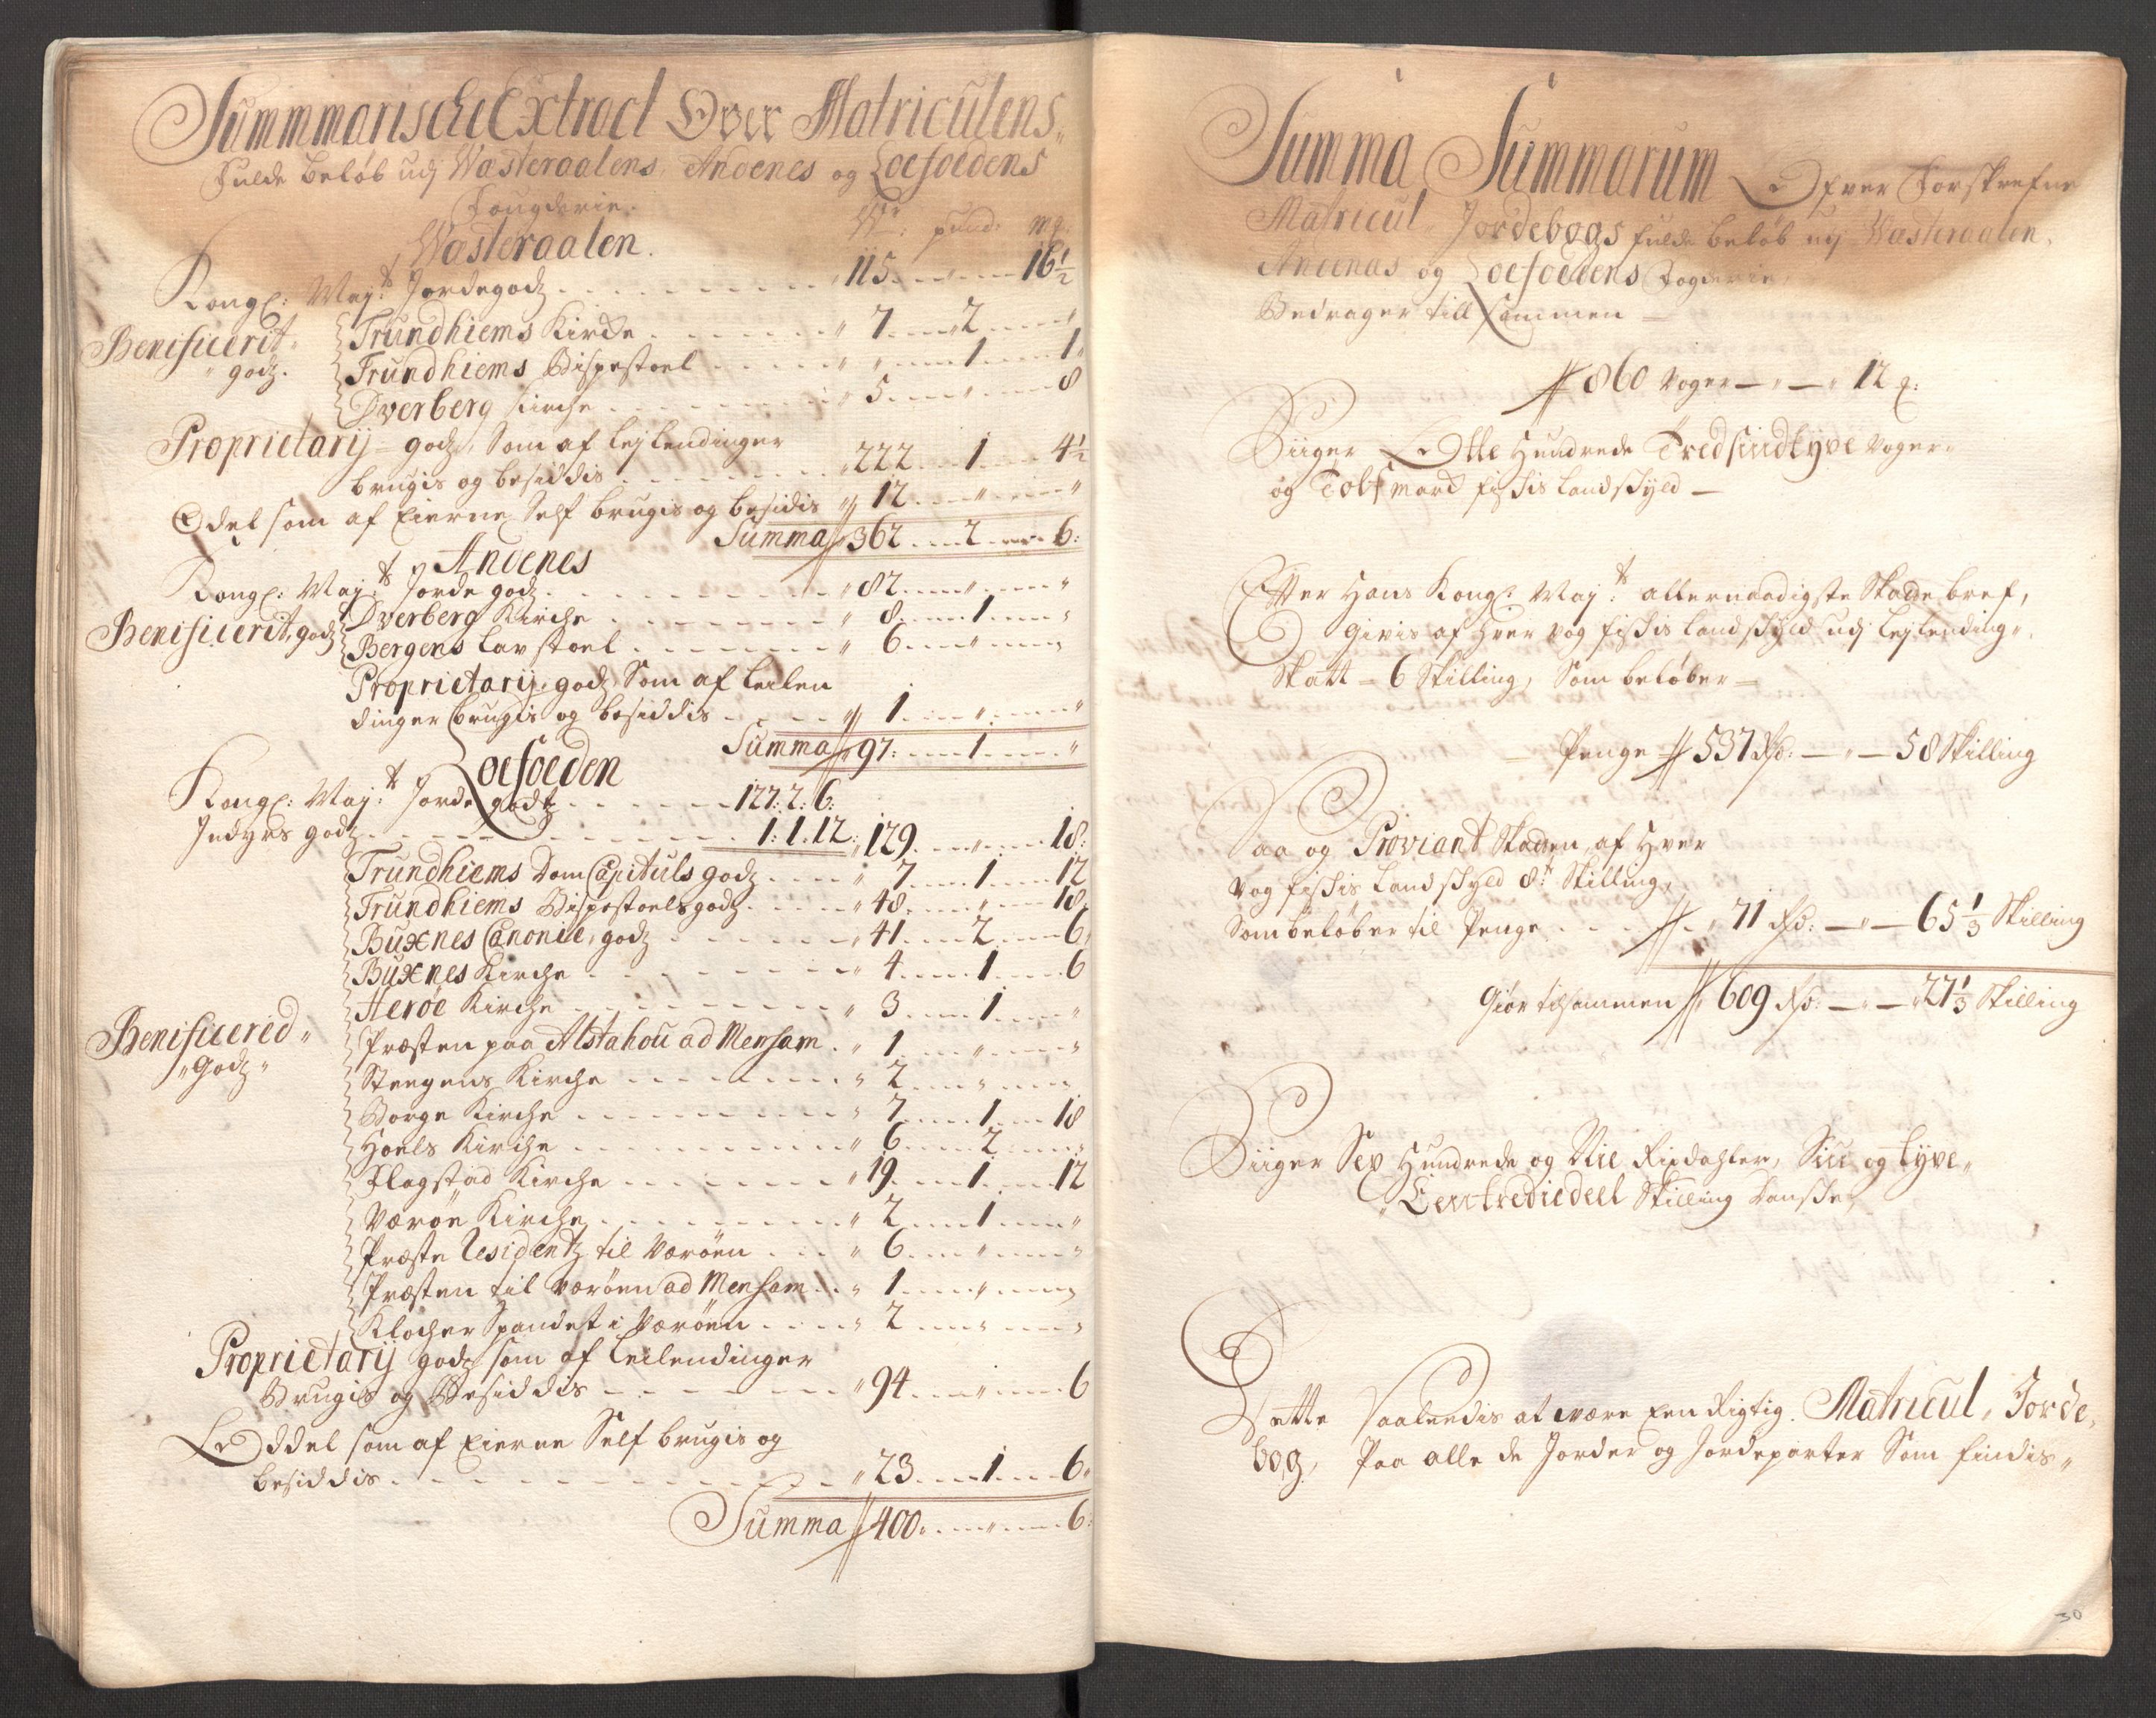 Summmarische Extract Over Matriculens
Fulde beløb udj Wasteraalens, Andenes og Loefoedens
Fougderie.
Wasteraalen. Wr: pund: mg:
Kongl: Maj:ts Jordegodz 115 " 16 1/2
Benificerit godz. Trundhiems Kircke " 7 2 "
Trundhiems Bispestoel " " 1 1
Dverberg Kirche " 5 " 8
Proprietarij godz, Som af Lejlendinger
brugis og besiddis 222 1 4 1/2
Odel som af Eierne Self brugis og besidis 12 " "
Summa 362 2 6:
Andenes
Kongl: Maj:ts Jorde godz 82 " "
Benificerit, godz Dverberg Kirche " 8 1 "
Bergens Lavstoel " 6 " "
Proprietarij godz Som af Leilen
dinger brugis og besiddis 1 " "
Summa 97: 1 "
Loefoeden
Kongl: Maj:ts Jorde godtz 127: 2: 6:
Indyrs godz 1: 1. 12: 129 " 18:
Trundhiems Dom Capituls godz " 7 1 12
Trundhiems Bispestoels godz " 48 " 18
Buxnes Canonie, godz " 41 2 6
Buxnes Kirche " 4 1 6
Herøe Kirche " 3 1 "
Benificered Godz Præsten paa Alstahou ad Mensam " 1 " "
Steegens Kirche " 2 " "
Borge Kirche " 7 1 18
Hoels Kirche " 6 2 "
Flagstad Kirche " 19 1 12
Værøe Kirche " 2 1 "
Præste Residentz til Værøen " 6 " "
Præsten til Værøen ad Mensam " 1 " "
Klocher Spandet i Værøen " 2 " "
Proprietarij godz som af Leilendinger
Brugis og Besiddis " 94 " 6
Oddel som af Eierne Self brugis og
besiddis " 23 1 6
Summa 400: " 6:
Summa Summarum Ofver Forskrefne
Matricul Jordebogs fulde beløb udj Wasteraalen,
Andenas og Loefoedens Fogderie,
Bedrager till sammen
860 Voger — " — 12 g:
Siiger Otte Hundrede Tredsindtyve Voger
og Tolf marck fischis Landschyld —
Etter Hans Kongl: Maj:ts allernaadigste Skatte bref,
Givis af Hver vog fischis landschyld udj Lejlending
Skatt = 6 Skilling, Som beløber =
Penge 537 Rd: — " — 58 Skilling
Saa og Proviant Skatten, af Hver
Vog fischis Landschyld 8te Skilling,
Som beløber til Penge 71 Rd: — " — 65 1/3 Skilling
Giør tilsammen 609 Rd: — " — 27 1/3 Skilling
Siiger Sex Hundrede og Nie Rixdahler, Siu og tyve
Een trediedeel Skilling Danske,
Dette Saaleedis at være Een Rigtig Matricul, Jorde,
bog, Paa alle de Jorder og Jordeparter Som findis
30